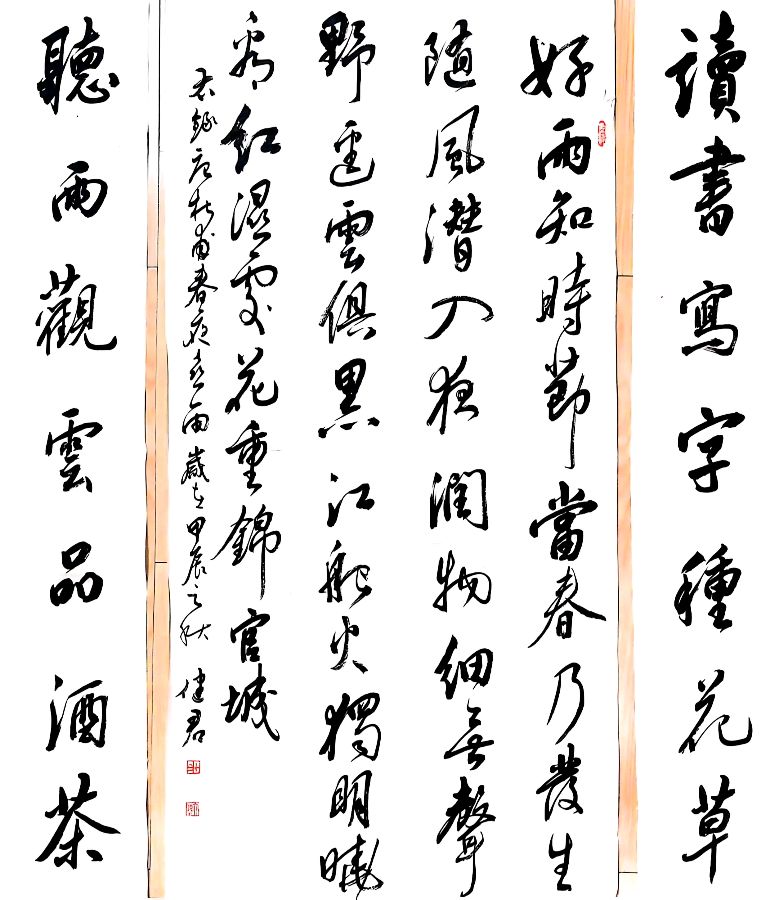 讀書寫字種花草
好雨知時節當春乃發生
隨風潛入夜潤物細無聲
野徑雲俱黑江船火獨明曉
看紅濕處花重錦官城
右錄唐杜甫春夜喜雨歲在甲辰之秋 健君
聽雨觀雲品酒茶